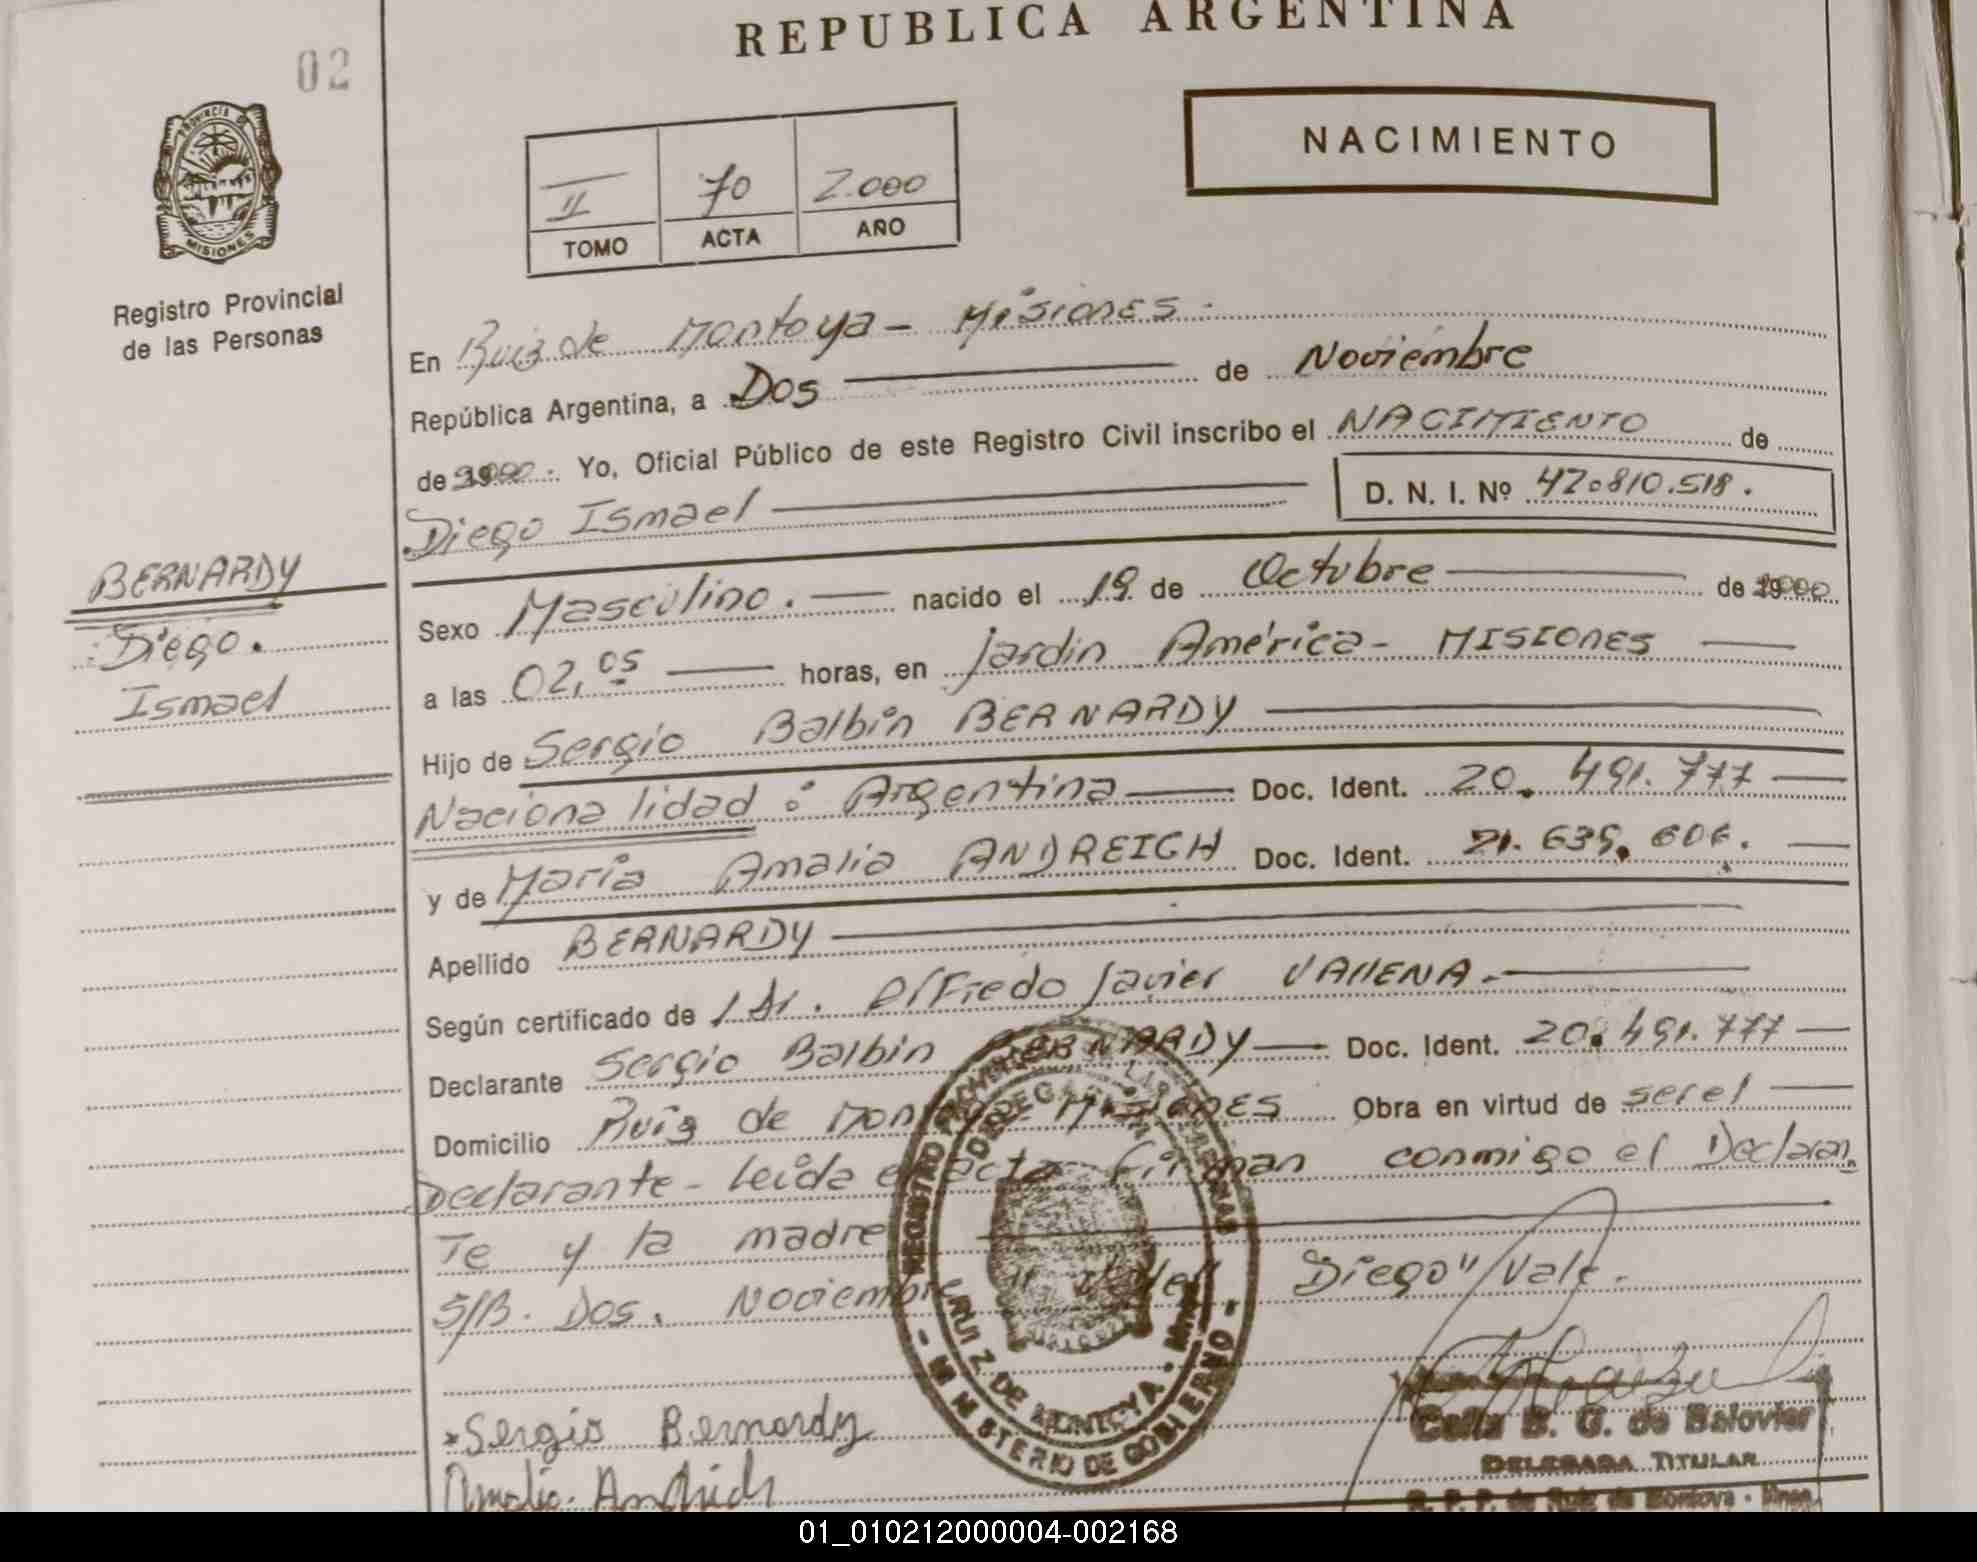 REPUBLICA ARGENTINA
02
PROVINCIA DE
MISIONES
Registro Provincial
de las Personas
NACIMIENTO
II 70 2.000
TOMO ACTA AÑO
En Ruiz de Montoya - Misiones.
República Argentina, a Dos de Noviembre
de 2000. Yo, Oficial Público de este Registro Civil inscribo el NACIMIENTO de
Diego Ismael D. N. I. Nº 42.810.518.
BERNARDY
Diego.
Ismael
Sexo Masculino. nacido el 19 de Octubre de 2000
a las 02,05 horas, en Jardin América - MISIONES
Hijo de Sergio Balbin BERNARDY
Nacionalidad: Argentina Doc. Ident. 20.491.777
y de Maria Amalia ANDREICH Doc. Ident. 21.639.606.
Apellido BERNARDY
Según certificado de Dr. Alfredo Javier VAllENA.
Declarante Sergio Balbin BERNARDY Doc. Ident. 20.491.777
Domicilio Ruiz de Montoya Misiones Obra en virtud de ser el
Declarante - Leida el acta firman conmigo el Declaran
Te y la madre
S/B. Dos. Noviembre Diego"/Vale.
REGISTRO PROVINCIAL DE LAS PERSONAS
DELEGACION
RUIZ DE MONTOYA - Mnes
- MINISTERIO DE GOBIERNO -
Sergio Bernardy
Amalia Andreich
Celia B. G. de Balovier
DELEGADA TITULAR
R. P. P. de Ruiz de Montoya - Mnes.
01_010212000004-002168